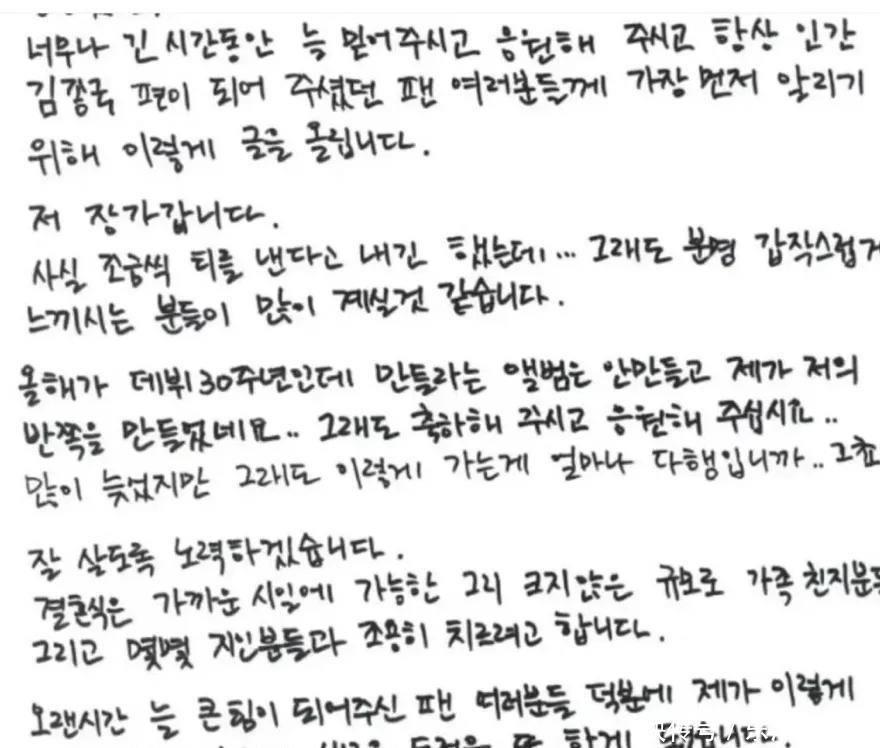 너무나 긴 시간동안 늘 믿어주시고 응원해 주시고 항상 인간
김종국 편이 되어 주셨던 팬 여러분들께 가장 먼저 알리기
위해 이렇게 글을 올립니다.
저 장가갑니다.
사실 조금씩 티를 낸다고 내긴 했는데... 그래도 분명 갑작스럽게
느끼시는 분들이 많이 계실것 같습니다.
올해가 데뷔30주년인데 만들라는 앨범은 안만들고 제가 저의
반쪽을 만들었네요.. 그래도 축하해 주시고 응원해 주십시요..
많이 늦었지만 그래도 이렇게 가는게 얼마나 다행입니까.. 그쵸
잘 살도록 노력하겠습니다.
결혼식은 가까운 시일에 가능한 그리 크지않은 규모로 가족 친지분들
그리고 몇몇 지인분들과 조용히 치르려고 합니다.
오랜시간 늘 큰 힘이 되어주신 팬 여러분들 덕분에 제가 이렇게